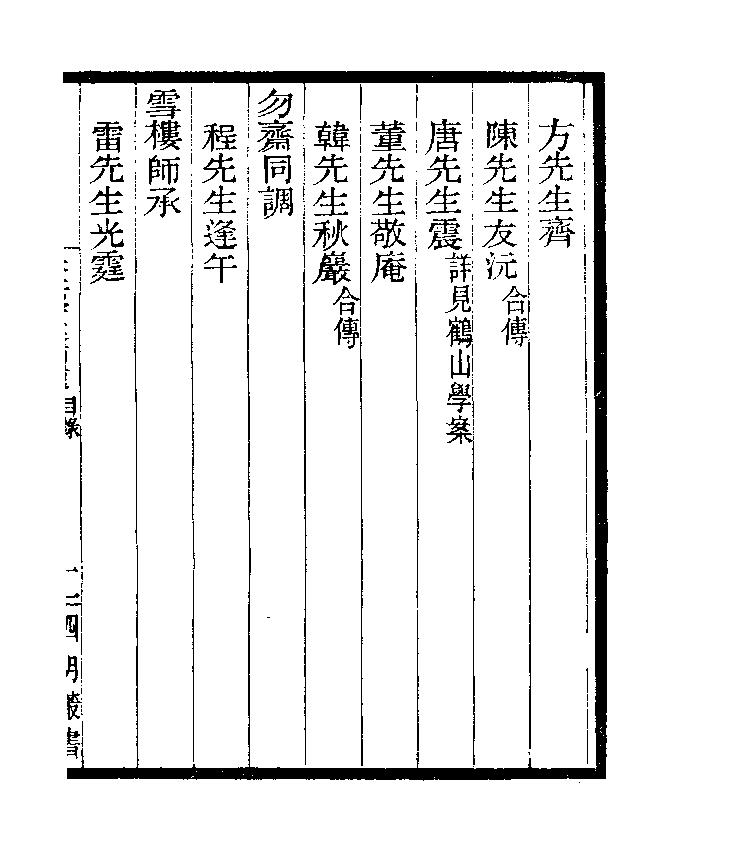 方先生齊
陳先生友沅合傳
唐先生震詳見鶴山學案
董先生敬庵
韓先生秋巖合傳
勿齋同調
程先生逢午
雪樓師承
雷先生光霆
目錄
四明叢書